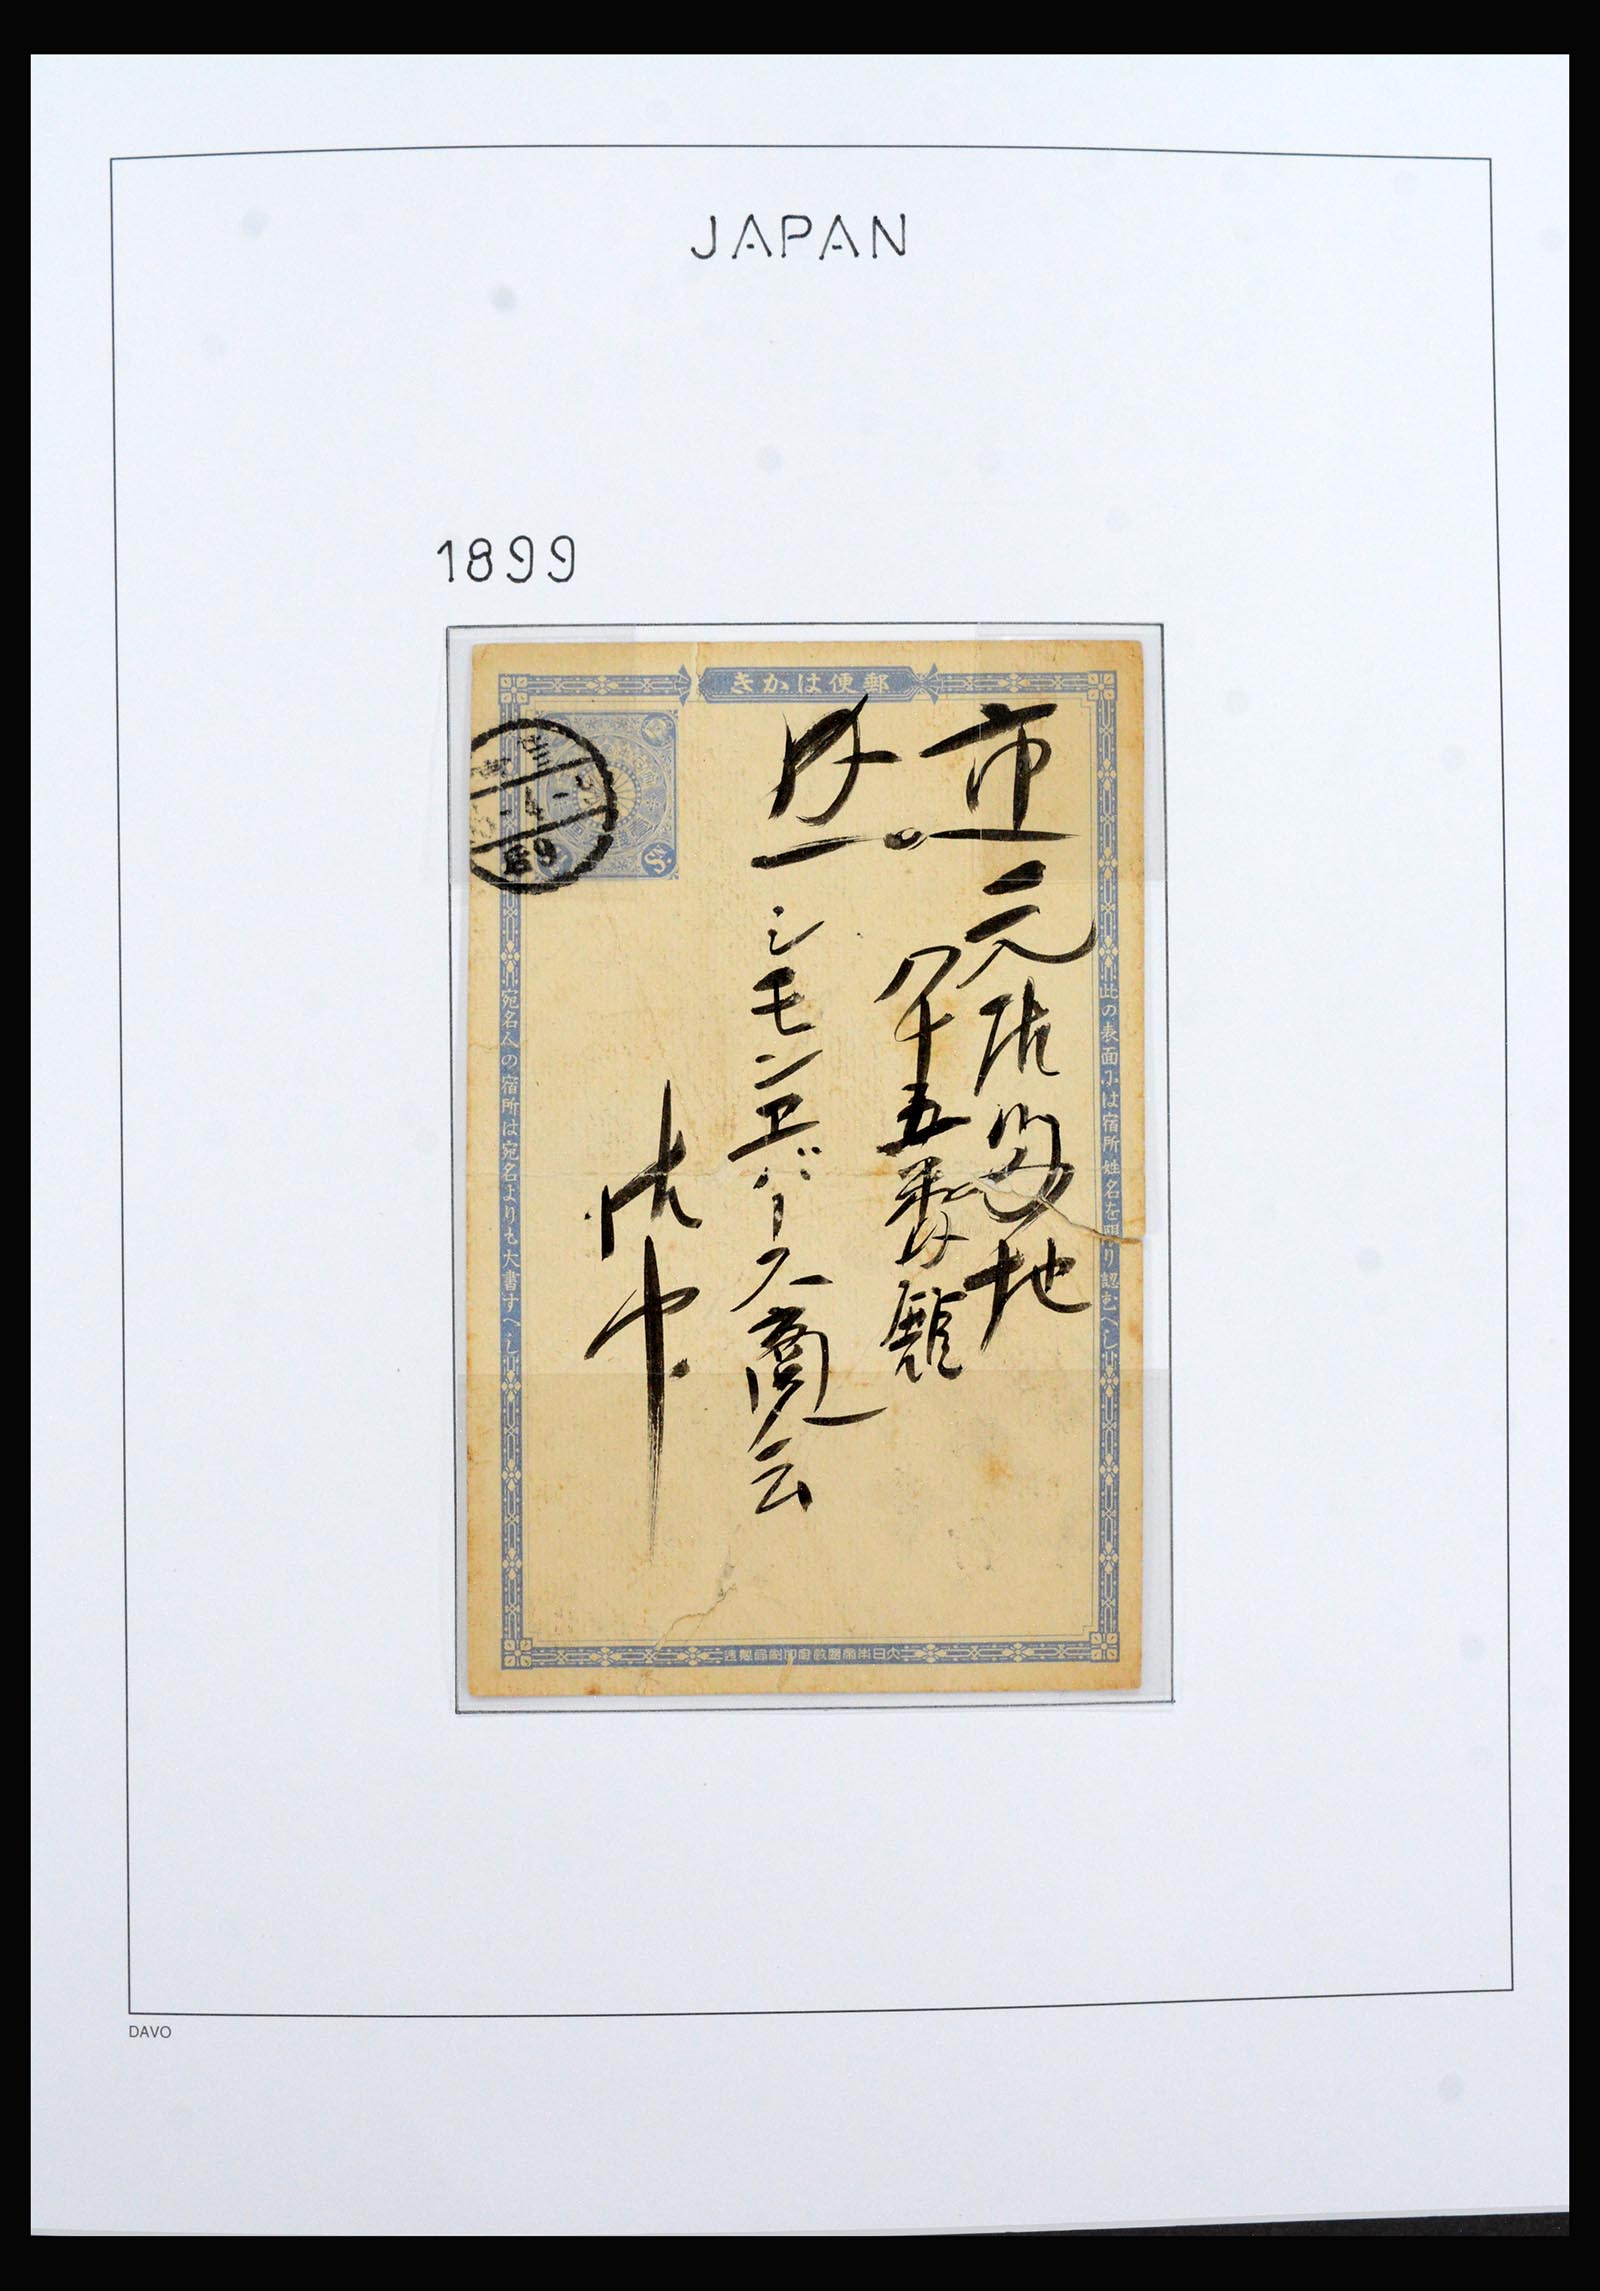 JAPAN
1899
きかは便郵
市元居留地
八十五番館
シモンエバース商会
御中
此の表面には宿所姓名を限り認むへし
宛名人の宿所は宛名よりも大書すへし
大日本帝国政府印刷局製造
DAVO